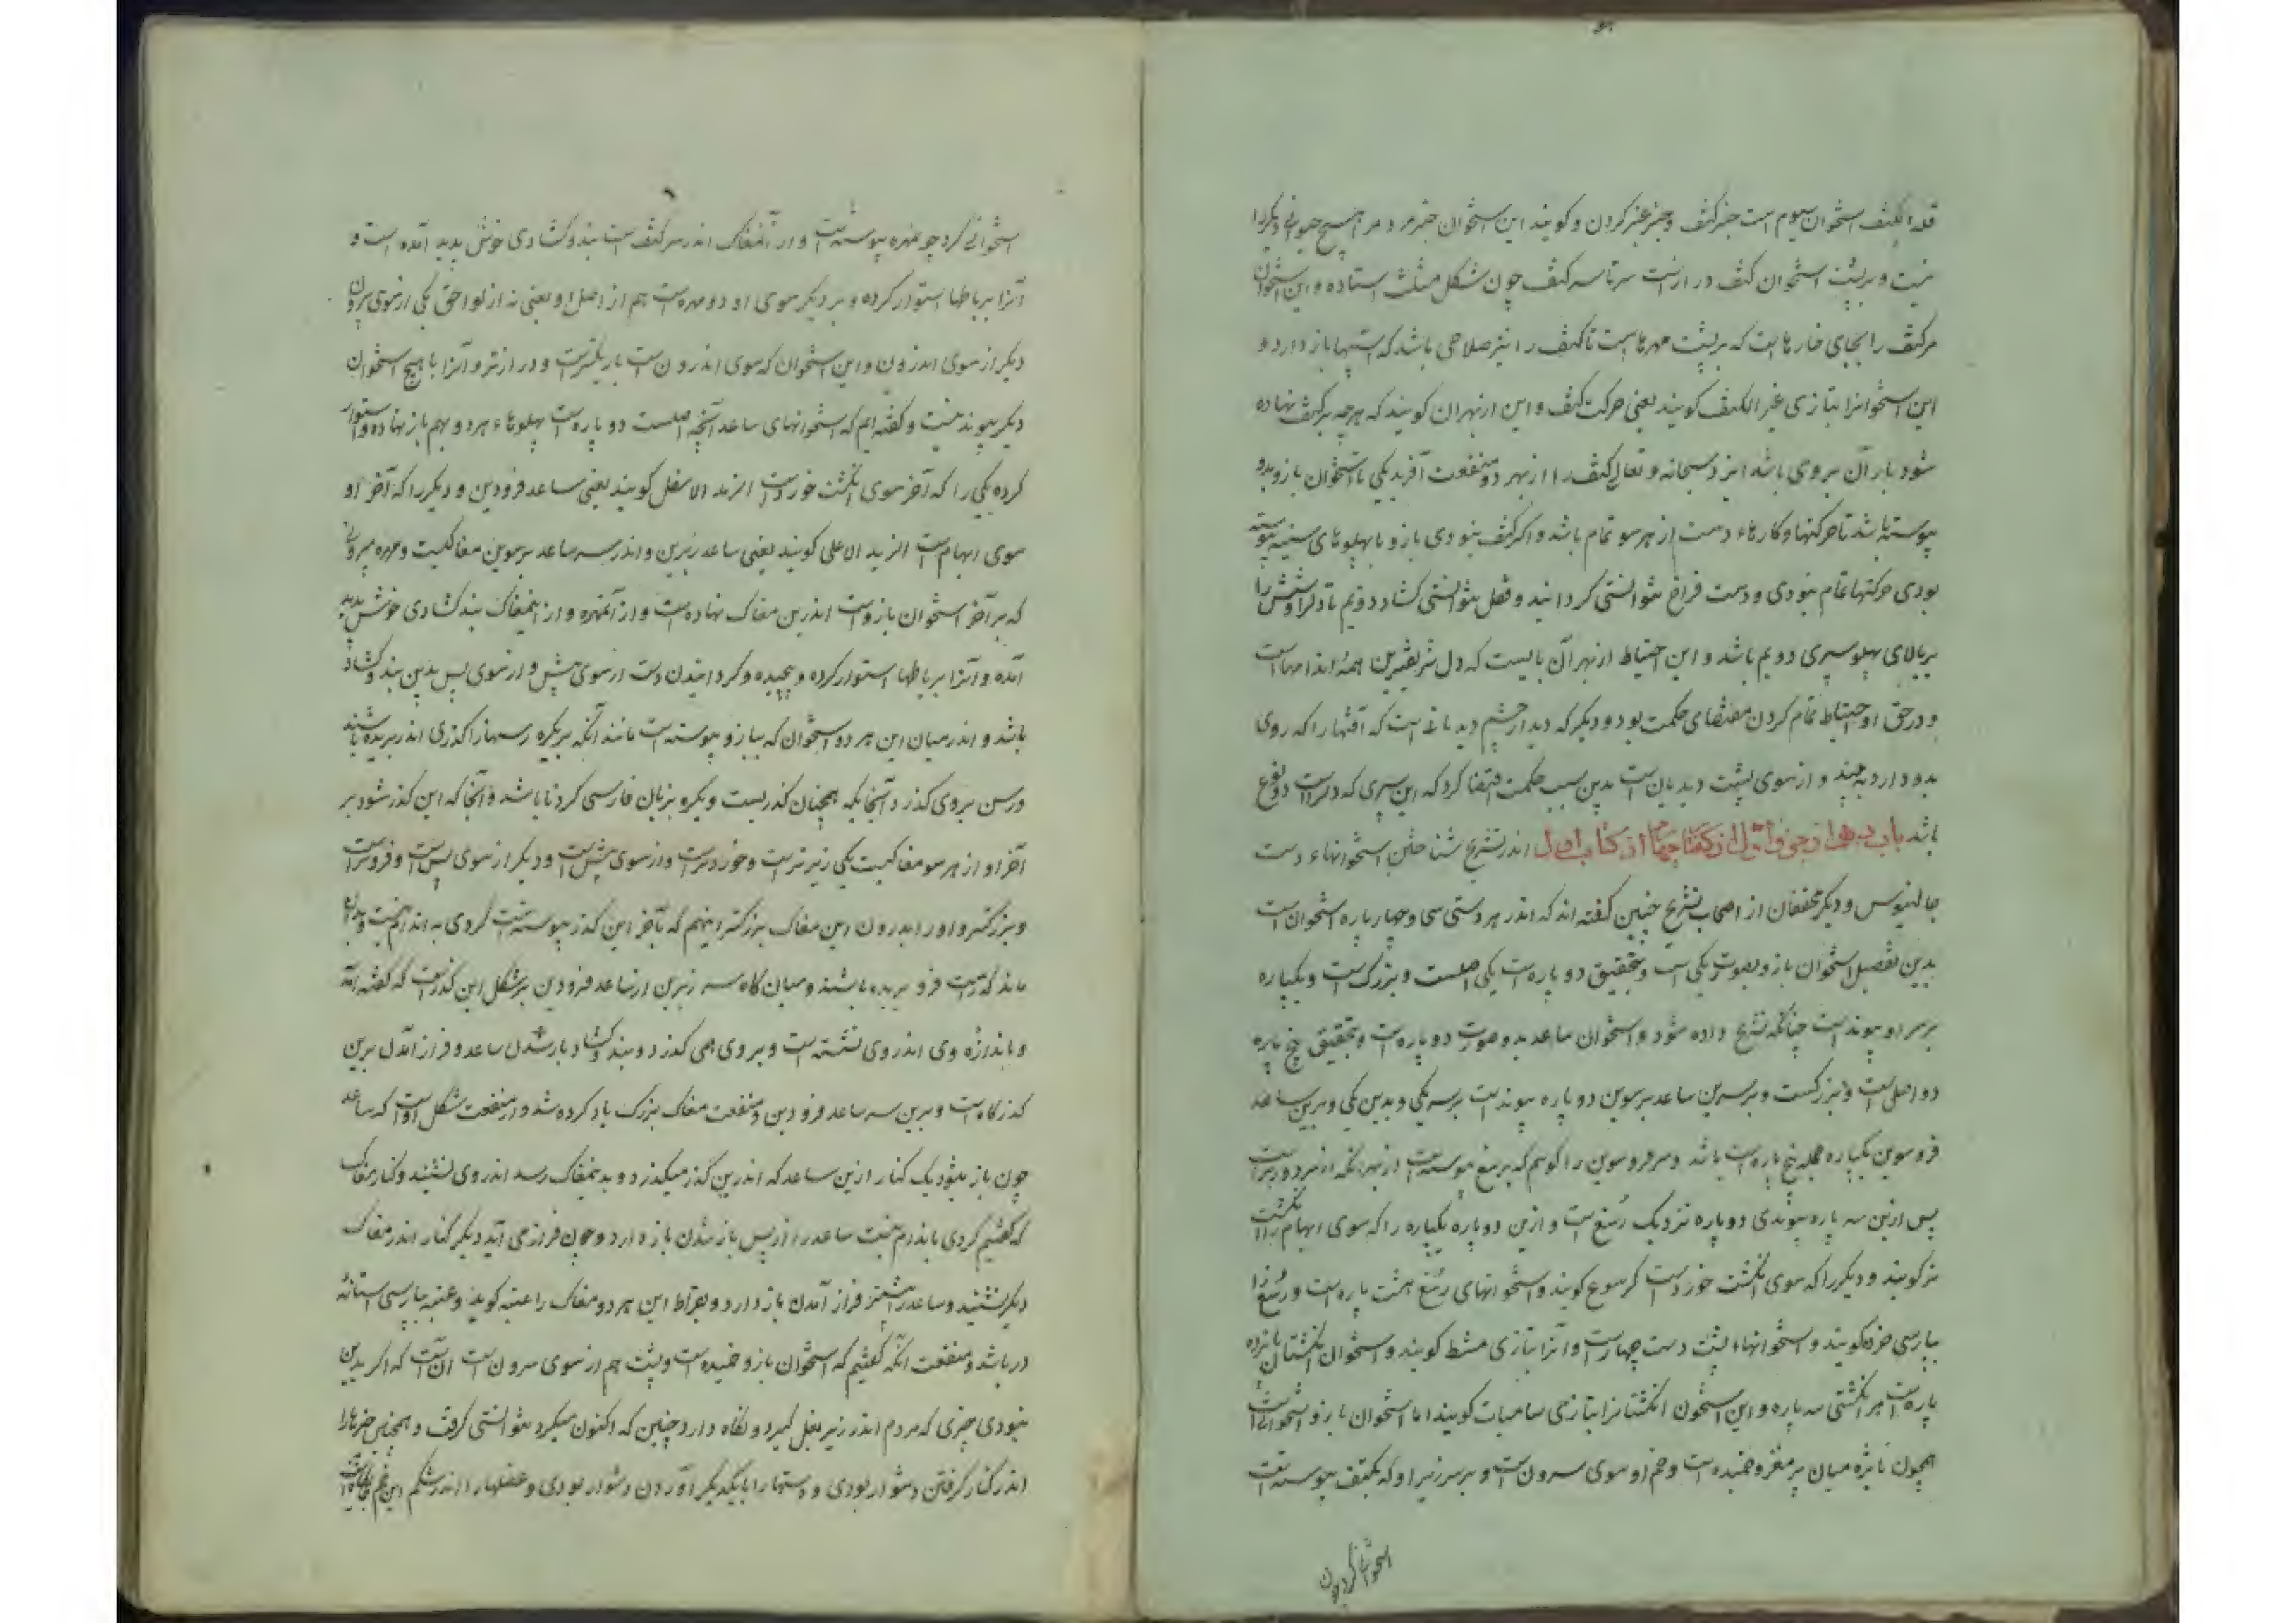 قلة الکتف استخوان سیوم است جز کتف و جز چنبر کردن و کویند این استخوان جز مردم مر هیچ حیوانی دیکر را
نیست و بر پشت استخوان کتف درازست سر تا سر کتف چون شکل مثلث استاده و این استخوان
مر کتف را بجای خارهاست که بر پشت مهرهاست تا کتف را نیز صلاحی باشد که اسیبها باز دارد و
این استخوانرا بتازی عیر الکتف کویند یعنی حرکت کتف و این از بهر آن کویند که هرچه بر کتف نهاده
شود بار آن بر وی باشد ایزد سبحانه و تعالی کتف را از بهر دو منفعت آفرید یکی تا استخوان بازو بدو
پیوسته باشد تا حرکتها و کارهاء دست از هر سو تمام باشد و اکر کتف نبودی بازو با پهلوهای سینه پیوسته
بودی حرکتها تمام نبودی و دست فراخ نتوانستی کردانید و فعل نتوانستی کشاد دویم تا دل را و شش را
بر بالای پهلو سپری دویم باشد و این احتیاط از بهر آن بایست که دل شریفترین همهٔ اندامهاست
و در حق او احتیاط تمام کردن مقتضای حکمت بود و دیکر که دیدار چشم دیدبانست که آفتها را که روی
بدو دارد به بیند و از سوی پشت دیدبان نیست بدین سبب حکمت اقتضا کرد که این سپری که دلراست دفوع
باشد باب دهم از جزو اول از کفتار چهارم از کتاب اول اندر تشریح شناختن استخوانهاء دست
جالینوس و دیکر محققان از اصحاب تشریح چنین کفته اند که اندر هر دستی سی و چهار پاره استخوان است
بدین تفصیل استخوان بازو بصورت یکی است و بتحقیق دو پاره است یکی اصلست و بزرک است و یکپاره
بر سر او پیوند است چنانکه تشریح داده شود و استخوان ساعد بدو صورت دو پاره است و بتحقیق پنج پاره
دو اصلی است و بزرکست و بر سرین ساعد برسوین دو پاره پیوند است بر سر یکی و بدین یکی و برین ساعد
فروسوین یکپاره جمله پنج پاره است باشد و سر فروسوین را کویم که بر رسغ پیوسته است از بهر آنکه از سر دورتر است
پس ازین سه پاره پیوندی دو پاره نزدیک رسغ است و ازین دو پاره یکپاره را که سوی ابهام است انکشت
نر کویند و دیکر را که سوی انکشت خورد است کرسوع کویند و استخوانهای رسغ هشت پاره است و رسغ را
بپارسی خرده کویند و استخوانهاء پشت دست چهار است و آنرا بتازی مشط کویند و استخوان انکشتان پانزده
پاره است هر انکشتی سه پاره و این استخون انکشتانرا بتازی سلامیات کویند اما استخوان بازو استخوانیست
همچون نایژه میان پر مغز و خمیده است و خم او سوی بیرون است و بر سر زیر او که بکتف پیوسته است
استخوانی کرد چون
استخوانی کرد چو مهره پیوسته است و از آن مغاک اندر سر کتف است بند و کشادی خوش پدید آمده است و
آنرا برباطها استوار کرده و بر دیکر سوی او دو مهره است هم از اصل او یعنی نه از لواحق یکی از سوی بیرون
دیکر از سوی اندرون و این استخوان که سوی اندرون است باریکتر است و درازتر و آنرا با هیچ استخوان
دیکر پیوند نیست و کفته ایم که استخوانهای ساعد آنچه اصلست دو پاره است پهلوهاء هر دو بهم باز نهاده و استوار
کرده یکی را که آخر سوی انکشت خورد است الزند الاسفل کویند یعنی ساعد فرودین و دیکر را که آخر او
سوی ابهام است الزند الاعلی کویند یعنی ساعد زبرین و اندر سر ساعد برسوین مغاکیست و مهره بیرونی
که بر آخر استخوان بازوست اندرین مغاک نهاده است و از آن مهره و از این مغاک بند کشادی خوش پدید
آمده و آنرا برباطها استوار کرده و پیچیده و کردانیدن دست از سوی پیش و از سوی پس بدین بند و کشاد
باشد و اندر میان این هر دو استخوان که ببازو پیوسته است مانند آنکه بر بکره رسنها را کذری اندر بریده باشند
و رسن بر وی کذرد آنجا که همچنان کذریست و بکره بزبان فارسی کردنا باشد و آنجا که این کذر شود بر
آخر او از هر سو مغاکیست یکی زیرتر است و خوردتر است و از سوی پیش است و دیکر از سوی پس است و فروتر است
و بزرکتر و اندرون این مغاک بزرکتر اینهم که بآخر این کذر پیوسته است کردی به اندام نیست و بدان
ماند که راست فرو بریده باشند و میان کاه سر زیرین از ساعد فرودین بر شکل این کذرست که کفته آمد
و باندازه وی اندر وی نشسته است و بر وی همی کذرد و بند و کشاد و باز شدن ساعد و فراز آمدن برین
کذرکاه است و برین سر ساعد فرودین و منفعت مغاک بزرک یاد کرده شد و از منفعت شکل او است که ساعد
چون باز شود یک کنار ازین ساعد که اندرین کذر میکذرد و بدین مغاک رسد اندر وی نشیند و کنار مغاک
که کفتیم کردی باندام نیست ساعد را از پس باز شدن باز دارد و چون فراز می آید دیکر کنار اندر مغاک
دیکر نشیند و ساعد را از بیشتر فراز آمدن باز دارد و بقراط این هر دو مغاک را عتبه کوید و عتبه بپارسی استانه
در باشد و منفعت آنکه کفتیم که استخوان بازو خمیده است و پشت هم از سوی بیرون است آنست که اکر بدین
نبودی چیزی که مردم اندر زیر بغل کیرد و نکاه دارد چنین که اکنون میکیرد نتوانستی کرفت و همچنین چیزها را
اندر کنار کرفتن دشوار بودی و دستها را با یکدیکر آوردن دشوار بودی و عضلها را اندر شکم این خم جایکاه است